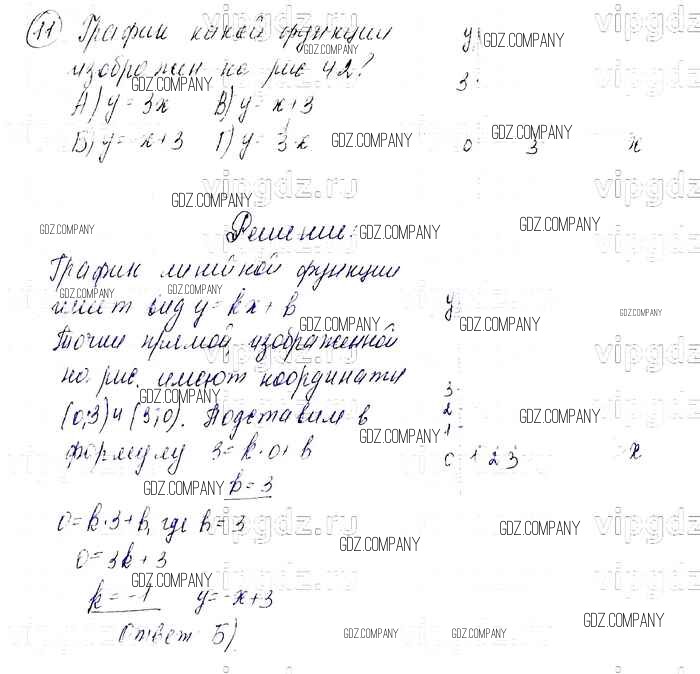 11 График какой функции
изображен на рис 42?
А) y = 3x В) y = x+3
Б) y = -x+3 Г) y = 3x
y
3
0 3 x
Решение:
График линейной функции
имеет вид y = kx + b
Точки прямой, изображенной
на рис. имеют координаты
(0;3) и (3;0). Подставим в
формулу 3 = k·0 + b
b = 3
0 = k·3 + b, где b = 3
0 = 3k + 3
k = -1 y = -x+3
Ответ Б)
y
3
2
1
0 1 2 3 x
vipgdz.ru
GDZ.COMPANY